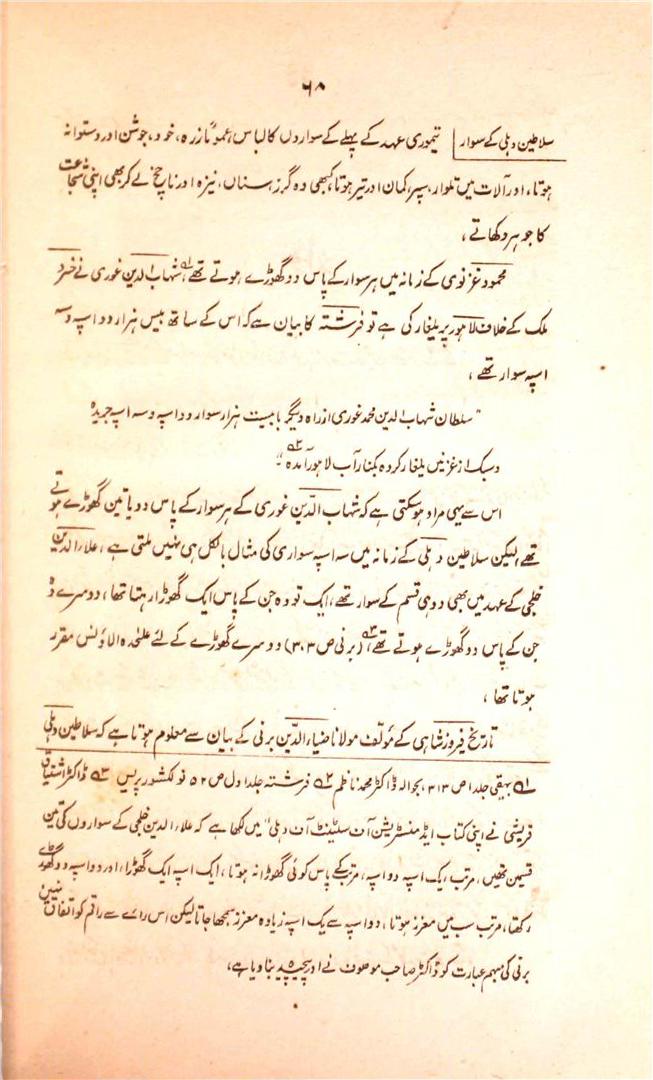 ۶۸
سلاطین دہلی کے سوار تیموری عہد کے پہلے کے سواروں کا لباس عموماً زرہ، خود، جوشن اور دستوانہ
ہوتا، اور آلات میں تلوار، سپر، کمان اور تیر ہوتا، کبھی وہ گرز، سناں، نیزہ اور ناچخ لے کر بھی اپنی شجاعت
کا جوہر دکھاتے،
محمود غزنوی کے زمانہ میں ہر سوار کے پاس دو گھوڑے ہوتے تھے،۱ شہاب الدین غوری نے خسرو
ملک کے خلاف لاہور پر یلغار کی ہے تو فرشتہ کا بیان ہے کہ اس کے ساتھ بیس ہزار دو اسپہ و سہ
اسپہ سوار تھے،
"سلطان شہاب الدین محمد غوری از راہ دیگر با بیست ہزار سوار دو اسپہ و سہ اسپہ جریدہ
و سبک از غزنیں یلغار کردہ بکنار آب لاہور آمدہ"۲
اس سے یہی مراد ہو سکتی ہے کہ شہاب الدّین غوری کے ہر سوار کے پاس دو یا تین گھوڑے ہوتے
تھے، لیکن سلاطین دہلی کے زمانہ میں سہ اسپہ سواری کی مثال بالکل ہی نہیں ملتی ہے، علاء الدین
خلجی کے عہد میں بھی دو ہی قسم کے سوار تھے، ایک تو وہ جن کے پاس ایک گھوڑا رہتا تھا، دوسرے وہ
جن کے پاس دو گھوڑے ہوتے تھے،۳ (برنی ص ۳۰۳) دوسرے گھوڑے کے لئے علیحدہ الاؤنس مقرر
ہوتا تھا،
تاریخ فیروز شاہی کے مؤلف مولانا ضیاء الدّین برنی کے بیان سے معلوم ہوتا ہے کہ سلاطین دہلی
۱ بیہقی جلد ا ص ۳۱۳، بحوالہ ڈاکٹر محمد ناظم ۲ فرشتہ جلد اول ص ۵۲ نولکشور پریس ۳ ڈاکٹر اشتیاق
قریشی نے اپنی کتاب ایڈمنسٹریشن آف سلٹینٹ آف دہلی" میں لکھا ہے کہ علاء الدین خلجی کے سواروں کی تین
قسمیں تھیں، مرتب، یک اسپہ دو اسپہ، مرتب کے پاس کوئی گھوڑا نہ ہوتا، ایک اسپہ ایک گھوڑا، اور دو اسپہ دو گھوڑے
رکھتا، مرتب سب میں معزز ہوتا، دو اسپہ سے یک اسپہ زیادہ معزز سمجھا جاتا لیکن اس رائے سے راقم کو اتفاق نہیں
برنی کی مبہم عبارت کو ڈاکٹر صاحب موصوف نے اور پیچیدہ بنا دیا ہے،